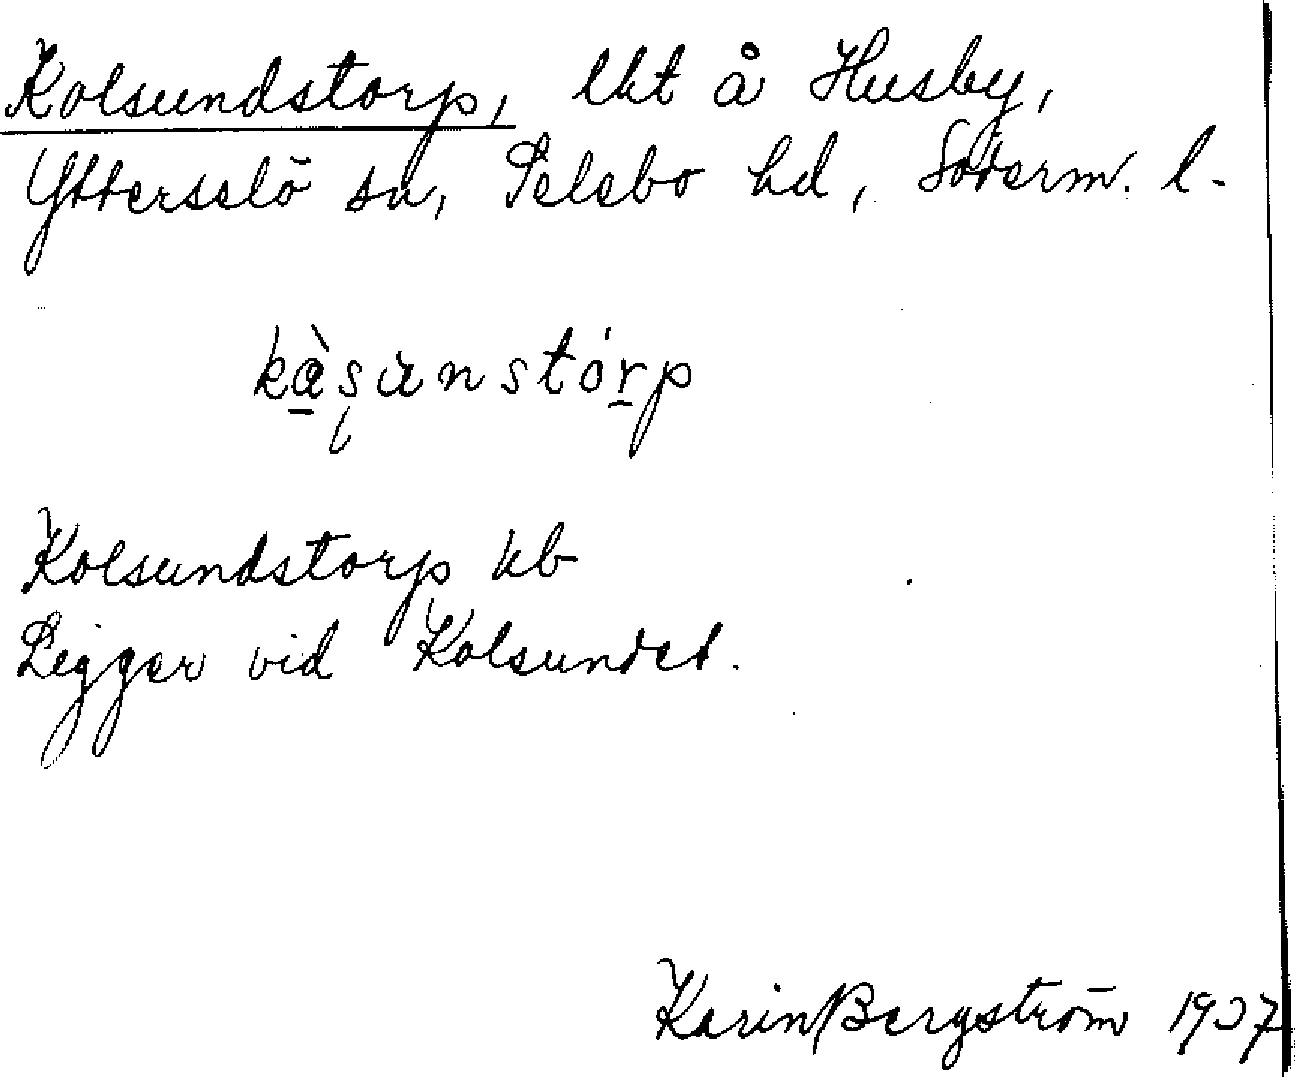 Kolsundstorp, lht å Husby,
Ytterselö sn, Selebo hd, Söderm. l.
kàşunstórp
Kolsundstorp kb
Ligger vid Kolsundet.
Karin Bergström 1937